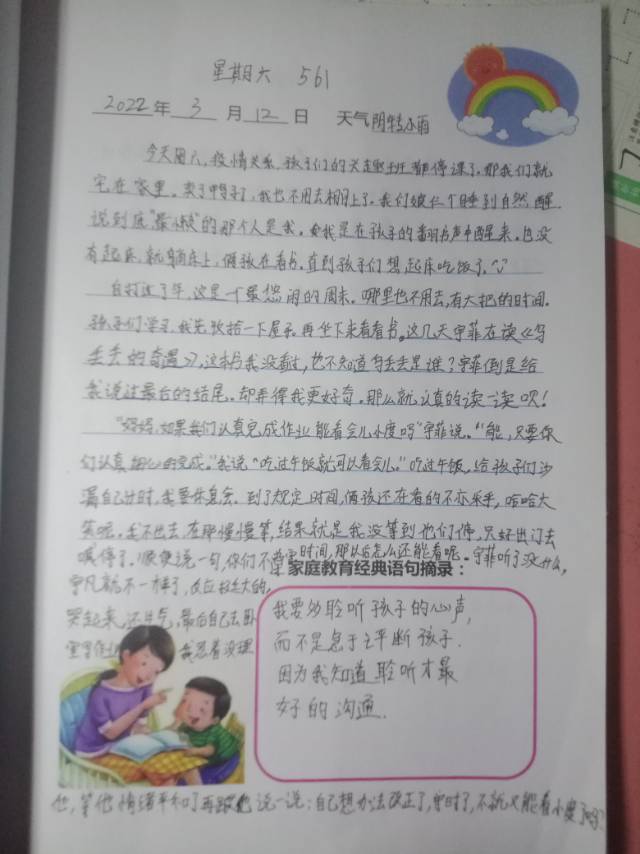 星期六 561
2022年 3 月 12 日 天气 阴转小雨
今天周六,疫情关系,孩子们的兴趣班都停课了,那我们就
宅在家里。卖了鸭子了,我也不用去棚上了。我们娘仨个睡到自然醒
说到底"最懒"的那个人是我。我是在孩子的翻书声中醒来。也没
有起床,就躺床上,俩孩在看书。直到孩子们想起床吃饭了。
自打过了年,这是一个最悠闲的周末。哪里也不用去,有大把的时间。
孩子们学习,我先收拾一下屋子,再坐下来看看书。这几天宇菲在读《乌
丢丢的奇遇》,这本书我没看过,也不知道乌丢丢是谁?宇菲倒是给
我说过最后的结尾。却弄得我更好奇。那么就认真的读一读呗!
"妈妈,如果我们认真完成作业能看会儿小度吗"宇菲说。"能,只要你
们认真细心的完成。"我说"吃过午饭就可以看会儿。"吃过午饭,给孩子们沙
漏自己计时,我要休息会。到了规定时间,俩孩还在看的不亦乐乎,哈哈大
笑呢。我不出去在那慢慢等,结果就是我没等到他们停,只好出门去
喊停了。顺便说一句,你们不遵守时间,那以后怎么还能看呢。宇菲听了没什么,
宇凡就不一样了,反应挺大的,
哭起来,还生气,最后自己去卧
室写作业 我忍着没理
家庭教育经典语句摘录:
我要多聆听孩子的心声,
而不是急于评断孩子.
因为我知道聆听才最
好的沟通.
他,等他情绪平和了再跟他说一说:自己想办法改正了,守时了,不就又能看小度了吗?